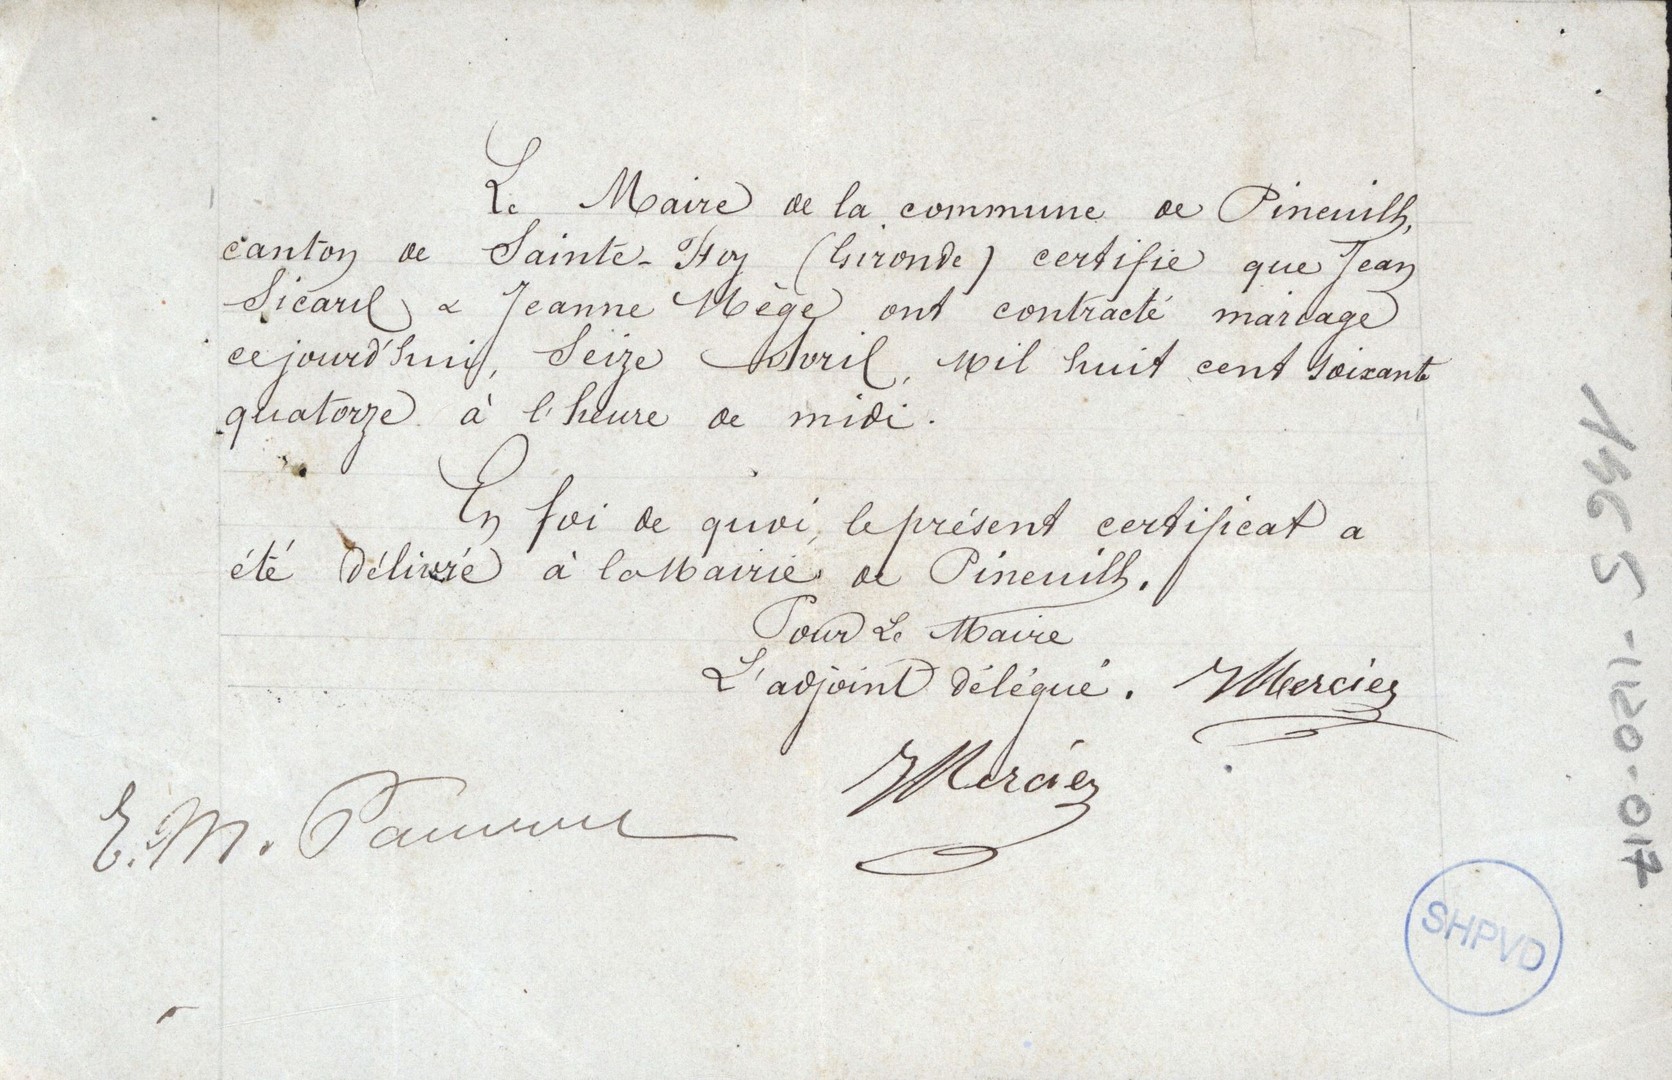 Le Maire de la commune de Pineuilh,
canton de Sainte-Foy (Gironde) certifie que Jean
Sicard & Jeanne Mège ont contracté mariage
cejourd'hui, Seize Avril, mil huit cent soixante
quatorze à l'heure de midi.
En foi de quoi, le présent certificat a
été délivré à la Mairie de Pineuilh.
Pour Le Maire
L'adjoint délégué. Mercier
Mercier
E. M.
SHPVD
1465-1120-017